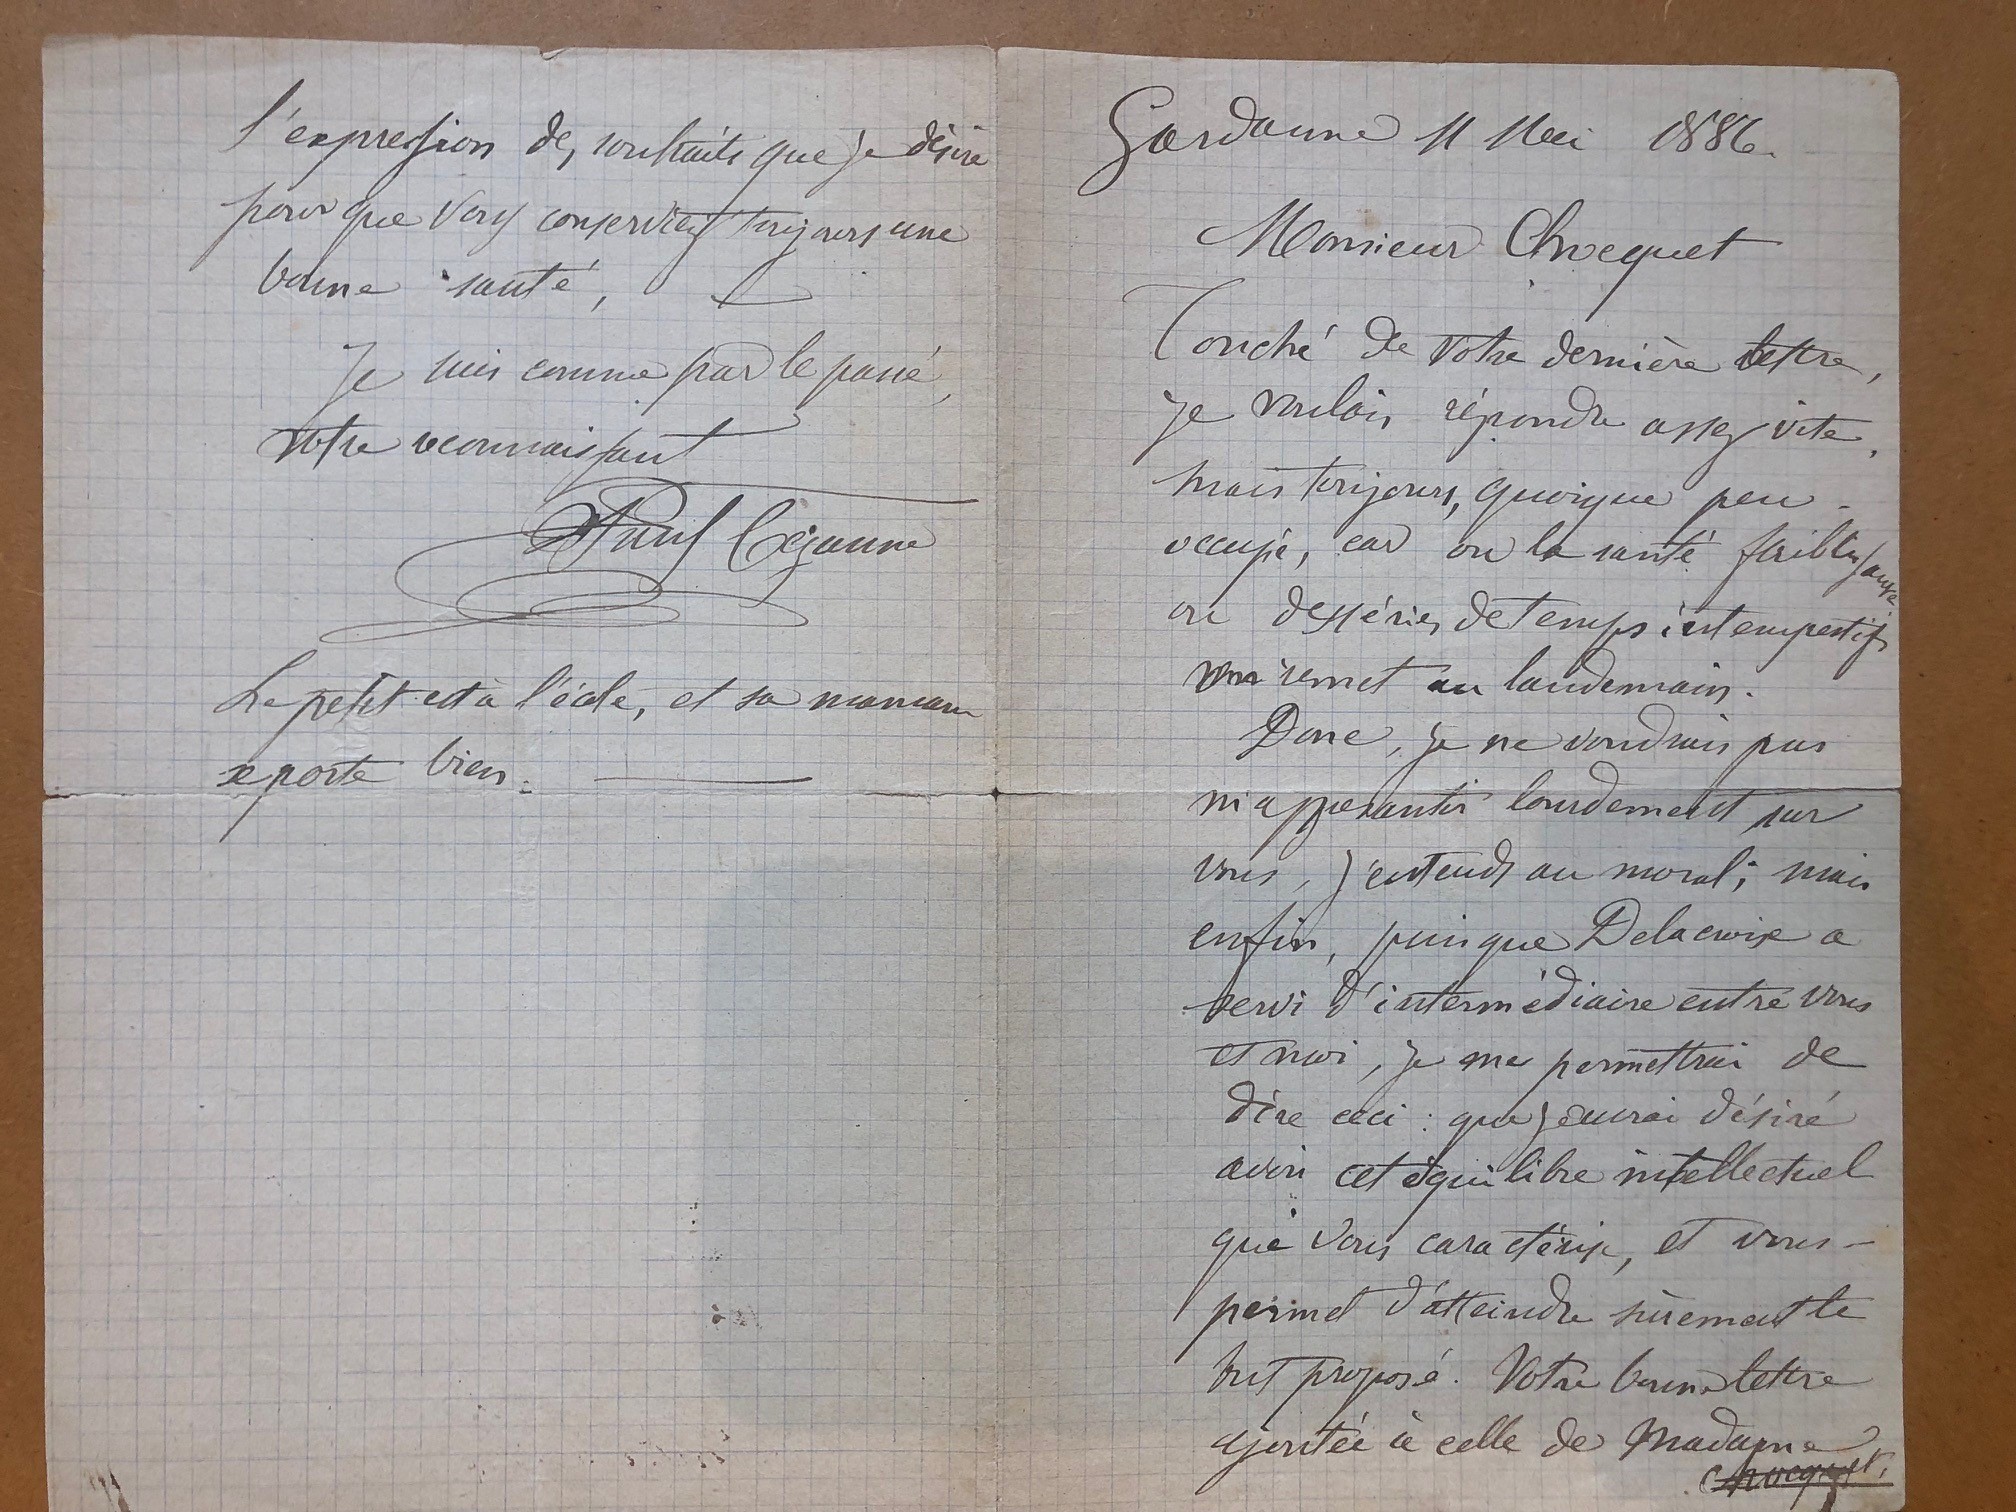 Gardanne 11 Mai 1886.
Monsieur Chocquet
Touché de votre dernière lettre,
je voulais répondre assez vite,
mais toujours, quoique peu
occupé, car ou la santé faible, cause,
ou des séries de temps intempestifs
remet au landemain.
Donc, je ne voudrais pas
m'appesantir lourdement sur
vous, j'entends au moral; mais
enfin, puisque Delacroix a
servi d'intermédiaire entre vous
et moi, je me permettrai de
dire ceci : que j'aurai désiré
avoir cet équilibre intellectuel
qui vous caractérise, et vous
permet d'atteindre sûrement le
but proposé. Votre bonne lettre
ajoutée à celle de Madame
Chocquet,
l'expression des souhaits que je désire
pour que vous conserviez toujours une
bonne santé,
Je suis comme par le passé,
votre reconnaissant
Paul Cézanne
Le petit est à l'école, et sa maman
se porte bien.